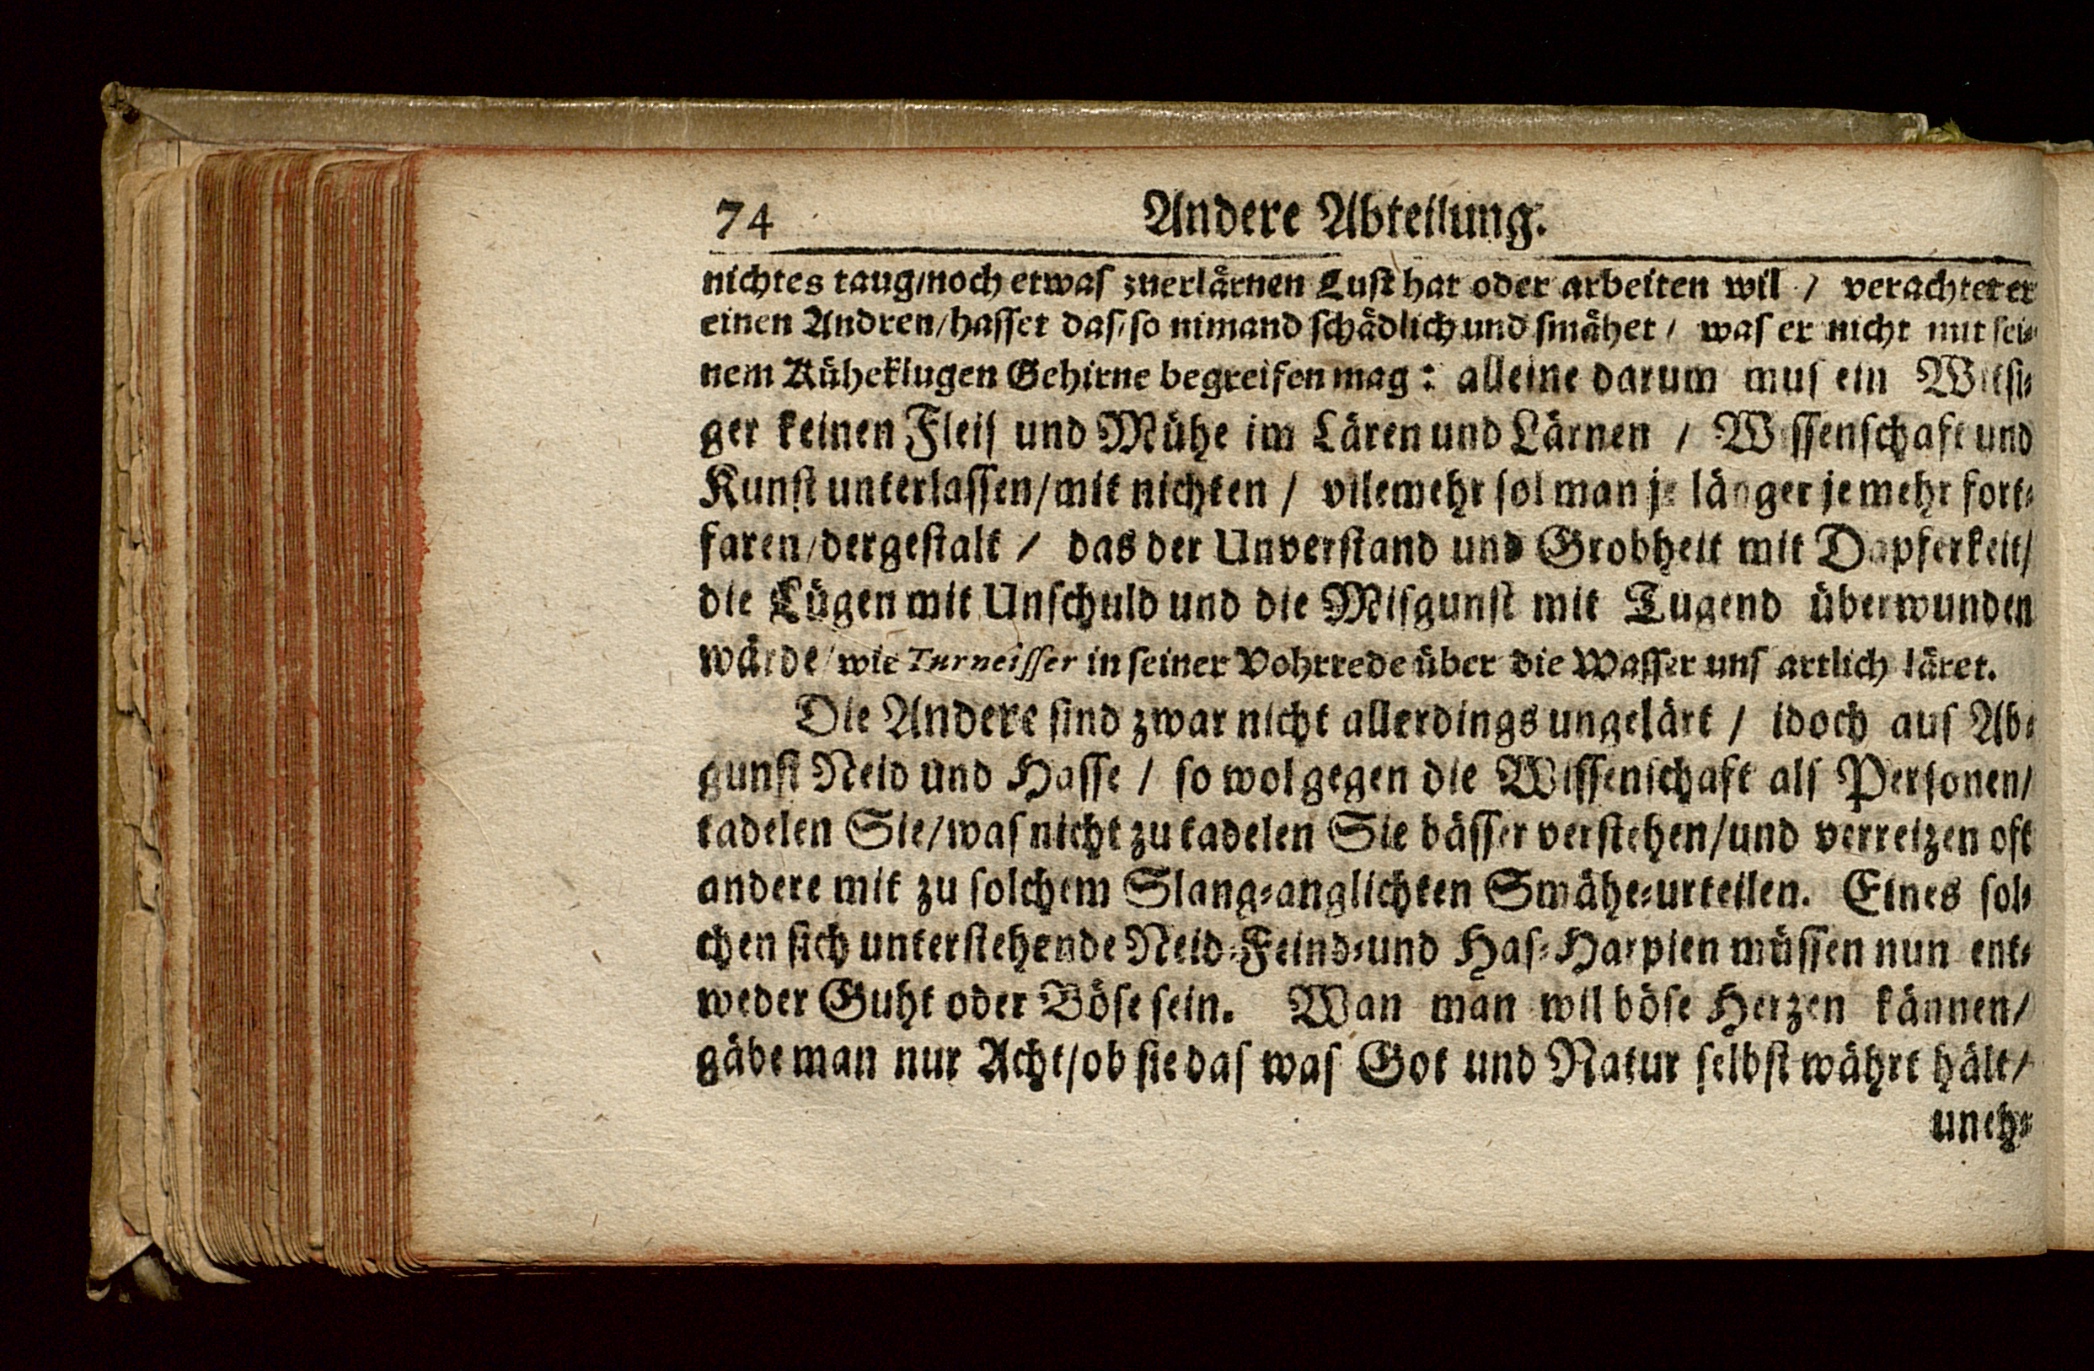 74 Andere Abteilung.
nichtes taug/noch etwaſ zuerlärnen Luſt hat oder arbeiten wil / verachtet er
einen Andren/haſſet daſ/ſo nimand ſchädlich und ſmähet / waſ er nicht mit ſei⸗
nem Küheklugen Gehirne begreifen mag: alleine darum muſ ein Witſi⸗
ger keinen Fleiſ und Mühe im Lären und Lärnen / Wiſſenſchaft und
Kunſt unterlaſſen/mit nichten / vilemehr ſol man je länger je mehr fort⸗
faren/dergeſtalt / das der Unverſtand und Grobheit mit Dapferkeit/
die Lügen mit Unſchuld und die Miſgunſt mit Tugend überwunden
würde/wie Turneiſſer in ſeiner Vohrrede über die Waſſer unſ artlich läret.
Die Andere ſind zwar nicht allerdings ungelärt / idoch auſ Ab⸗
gunſt Neid und Haſſe / ſo wol gegen die Wiſſenſchaft alſ Perſonen/
tadelen Sie/waſ nicht zu tadelen Sie bäſſer verſtehen/und verreizen oft
andere mit zu ſolchem Slang⸗anglichten Smähe⸗urteilen. Eines ſol⸗
chen ſich unterſtehende Neid⸗Feind⸗und Haſ⸗Harpien müſſen nun ent⸗
weder Guht oder Böſe ſein. Wan man wil böſe Herzen kännen/
gäbe man nur Acht/ob ſie daſ waſ Got und Natur ſelbſt währt hält/
uneh⸗